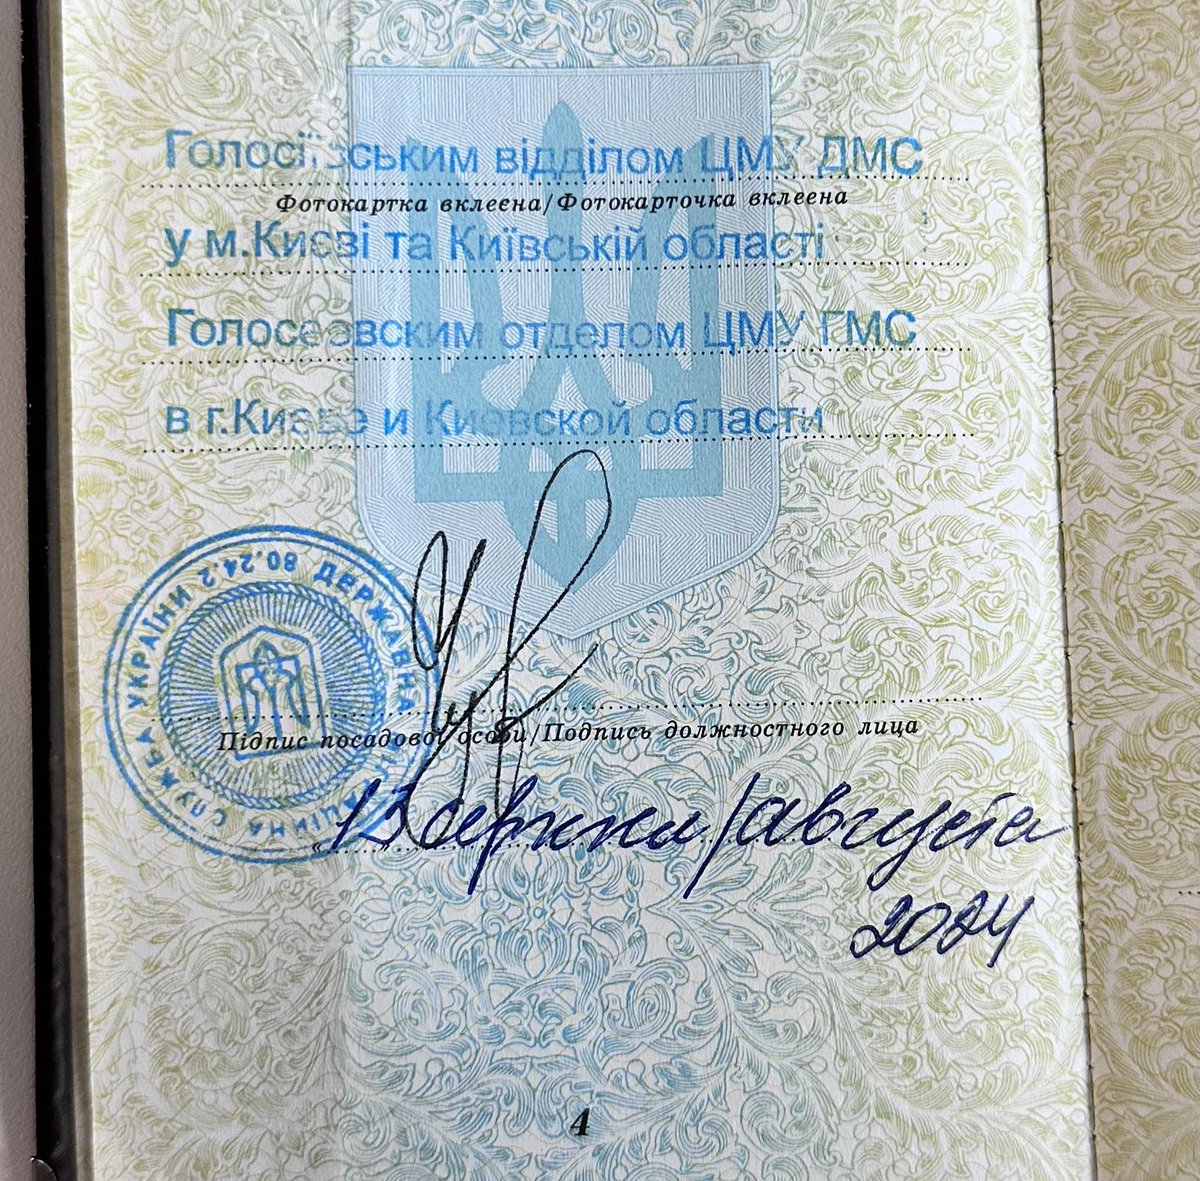 Голосіївським відділом ЦМУ ДМС
Фотокартка вклеєна/Фотокарточка вклеена
у м.Києві та Київській області
Голосеевским отделом ЦМУ ГМС
в г.Киеве и Киевской области
ДЕРЖАВНА МІГРАЦІЙНА СЛУЖБА УКРАЇНИ 80.24.2
Підпис посадової особи/Подпись должностного лица
« 13 серпня/августа
2024
4